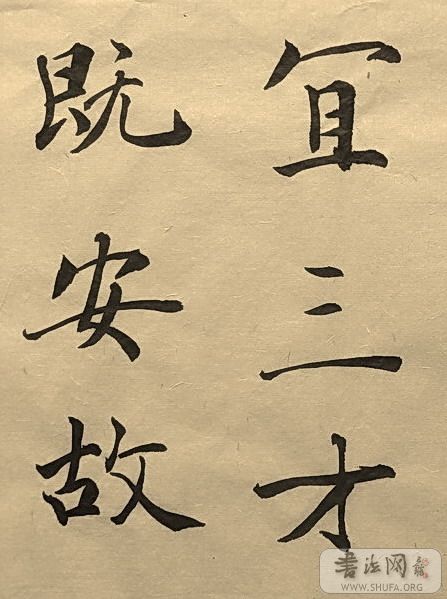 宜三才
既安故
書法网
WWW.SHUFA.ORG